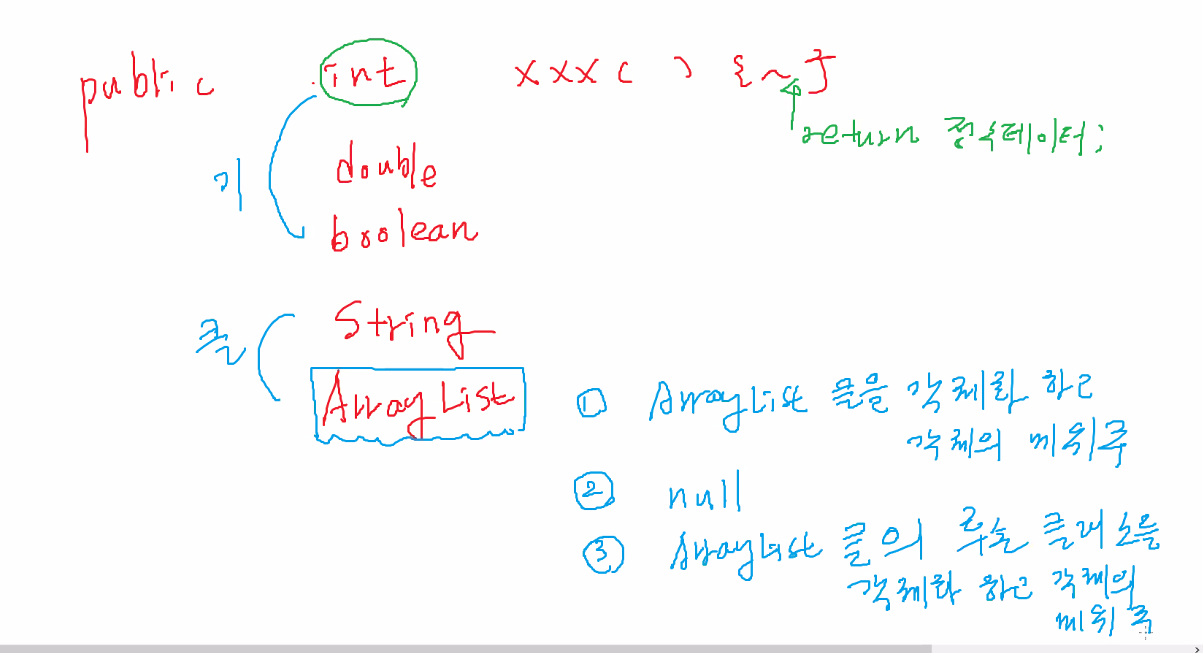 public int xxx( ) {~}
return 정수데이터;
기
double
boolean
클 String
ArrayList
① ArrayList 클을 객체화 하고
객체의 메위주
② null
③ ArrayList 클의 후손 클래스를
객체화 하고 객체의
메위주